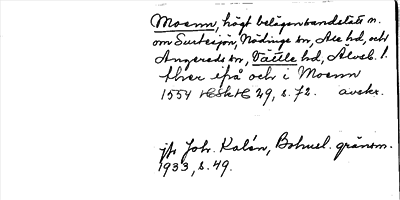 Moenn, högt belägen landstets n.
om Surtesjön, Nödinge sn, Ale hd, och
Angereds sn, Vättle hd, Älvsb. l.
ther ifrå och i Moenn
1554 HSH 29, s. 72. avskr.
jfr Joh. Kalén, Bohusl. gränsm.
1933, s. 49.